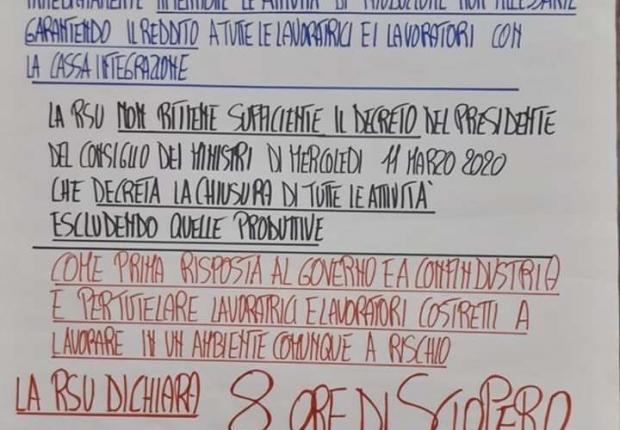 LE ATTIVITA' DI PRODUZIONE NON NECESSARIE
GARANTENDO IL REDDITO A TUTTE LE LAVORATRICI E I LAVORATORI CON
LA CASSA INTEGRAZIONE
LA RSU NON RITIENE SUFFICIENTE IL DECRETO DEL PRESIDENTE
DEL CONSIGLIO DEI MINISTRI DI MERCOLEDI 11 MARZO 2020
CHE DECRETA LA CHIUSURA DI TUTTE LE ATTIVITA'
ESCLUDENDO QUELLE PRODUTTIVE
COME PRIMA RISPOSTA AL GOVERNO E A CONFINDUSTRIA
E PER TUTELARE LAVORATRICI E LAVORATORI COSTRETTI A
LAVORARE IN UN AMBIENTE COMUNQUE A RISCHIO
LA RSU DICHIARA 8 ORE DI SCIOPERO